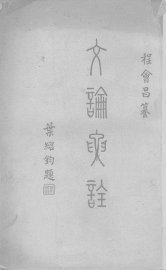 程會昌纂
文論要詮
葉紹鈞題